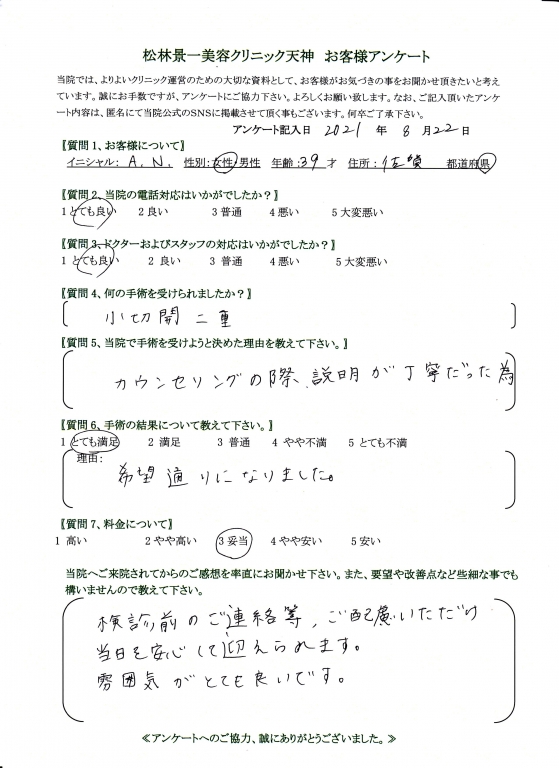 松林景一美容クリニック天神　お客様アンケート
当院では、よりよいクリニック運営のための大切な資料として、お客様がお気づきの事をお聞かせ頂きたいと考え
ています。誠にお手数ですが、アンケートにご協力下さい。よろしくお願い致します。なお、ご記入頂いたアンケ
ート内容は、匿名にて当院公式のSNSに掲載させて頂く事もございます。何卒ご了承下さい。
アンケート記入日 2021 年 8 月 22 日
〖質問 1、お客様について〗
イニシャル: A. N. 性別:女性/男性 年齢:39 才 住所: 佐賀 都道府県
〖質問 2、当院の電話対応はいかがでしたか？〗
1 とても良い 2 良い 3 普通 4 悪い 5 大変悪い
〖質問 3、ドクターおよびスタッフの対応はいかがでしたか？〗
1 とても良い 2 良い 3 普通 4 悪い 5 大変悪い
〖質問 4、何の手術を受けられましたか？〗
小切開二重
〖質問 5、当院で手術を受けようと決めた理由を教えて下さい。〗
カウンセリングの際、説明が丁寧だった為
〖質問 6、手術の結果について教えて下さい。〗
1 とても満足 2 満足 3 普通 4 やや不満 5 とても不満
理由:
希望通りになりました。
〖質問 7、料金について〗
1 高い 2 やや高い 3 妥当 4 やや安い 5 安い
当院へご来院されてからのご感想を率直にお聞かせ下さい。また、要望や改善点など些細な事でも
構いませんので教えて下さい。
検診前のご連絡等、ご配慮いただけ
当日を安心して迎えられます。
雰囲気がとても良いです。
≪アンケートへのご協力、誠にありがとうございました。≫